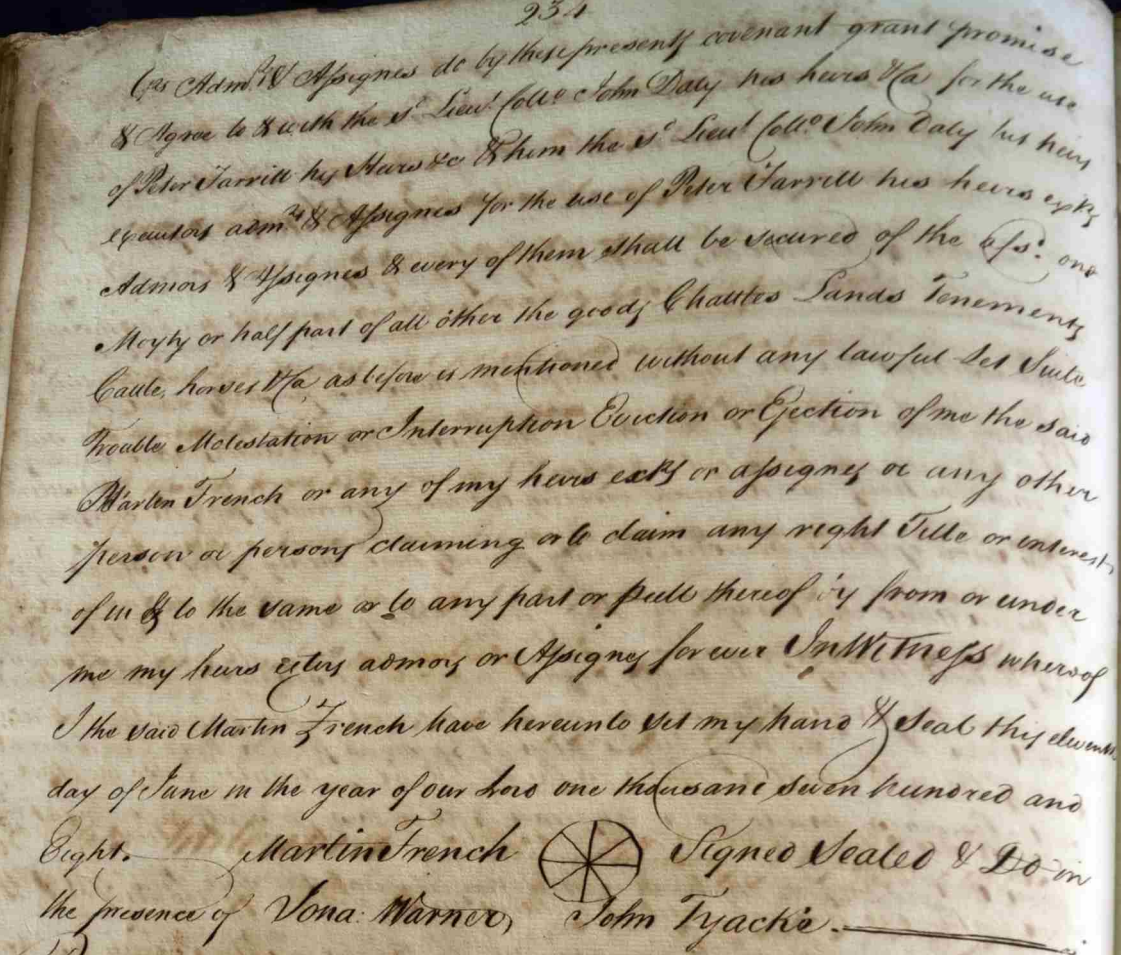 234
Exs Admrs & Assignes do by these presents covenant grant promise
& Agree to & with the sd Lieut Collo John Daly his heirs &ca for the use
of Peter Farrill his Heirs &c & him the sd Lieut Collo John Daly his heirs
executors admrs & Assignes for the use of Peter Farrill his heirs exrs
Admors & Assignes & every of them shall be secured of the afsd. one
Moyty or half part of all other the goods Chattles Lands Tenements
Cattle, horses &ca as before is mentioned without any lawful Let Suite
Trouble Molestation or Interruption Eviction or Ejection of me the said
Martin French or any of my heirs exrs or assignes or any other
person or persons claiming or to claim any right Title or interest
of in & to the same or to any part or pcell thereof by from or under
me my heirs extrs admors or Assignes for ever In Witness whereof
I the said Martin French have hereunto set my hand & Seal this eleventh
day of June in the year of our Lord one thousand seven hundred and
Eight. Martin French Signed Sealed & DD in
the presence of Jona: Warner, John Tyacke.